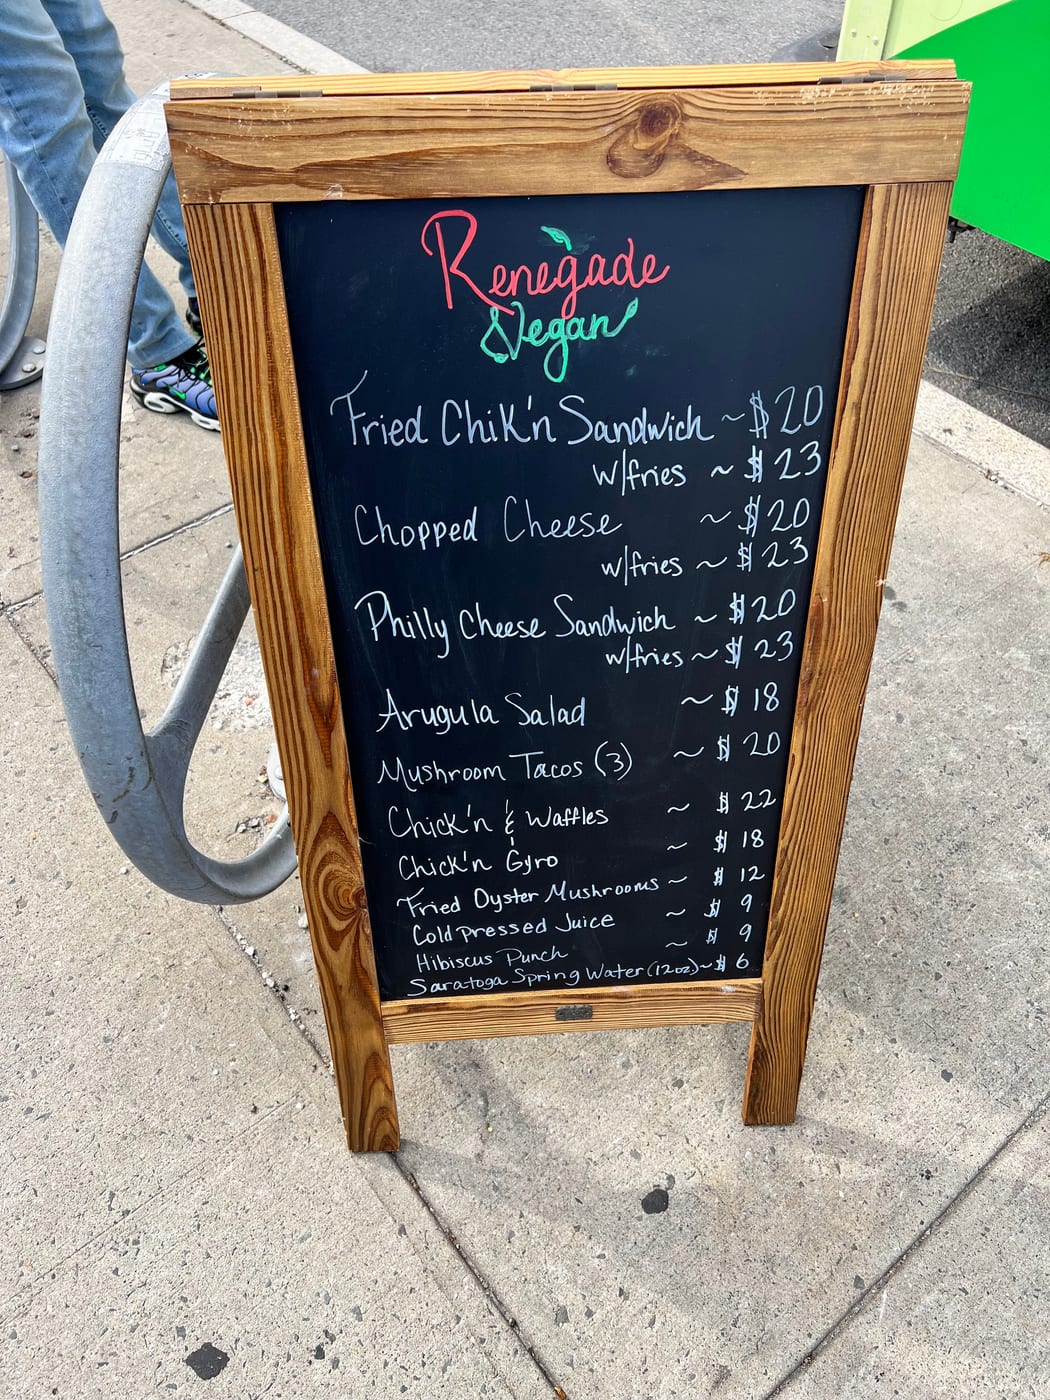 Renegade
Vegan
Fried Chik'n Sandwich ~ $20
w/fries ~ $23
Chopped Cheese ~ $20
w/fries ~ $23
Philly Cheese Sandwich ~ $20
w/fries ~ $23
Arugula Salad ~ $18
Mushroom Tacos (3) ~ $20
Chick'n & Waffles ~ $22
Chick'n Gyro ~ $18
Fried Oyster Mushrooms ~ $12
Cold pressed Juice ~ $9
Hibiscus Punch ~ $9
Saratoga Spring Water (12oz) ~ $6